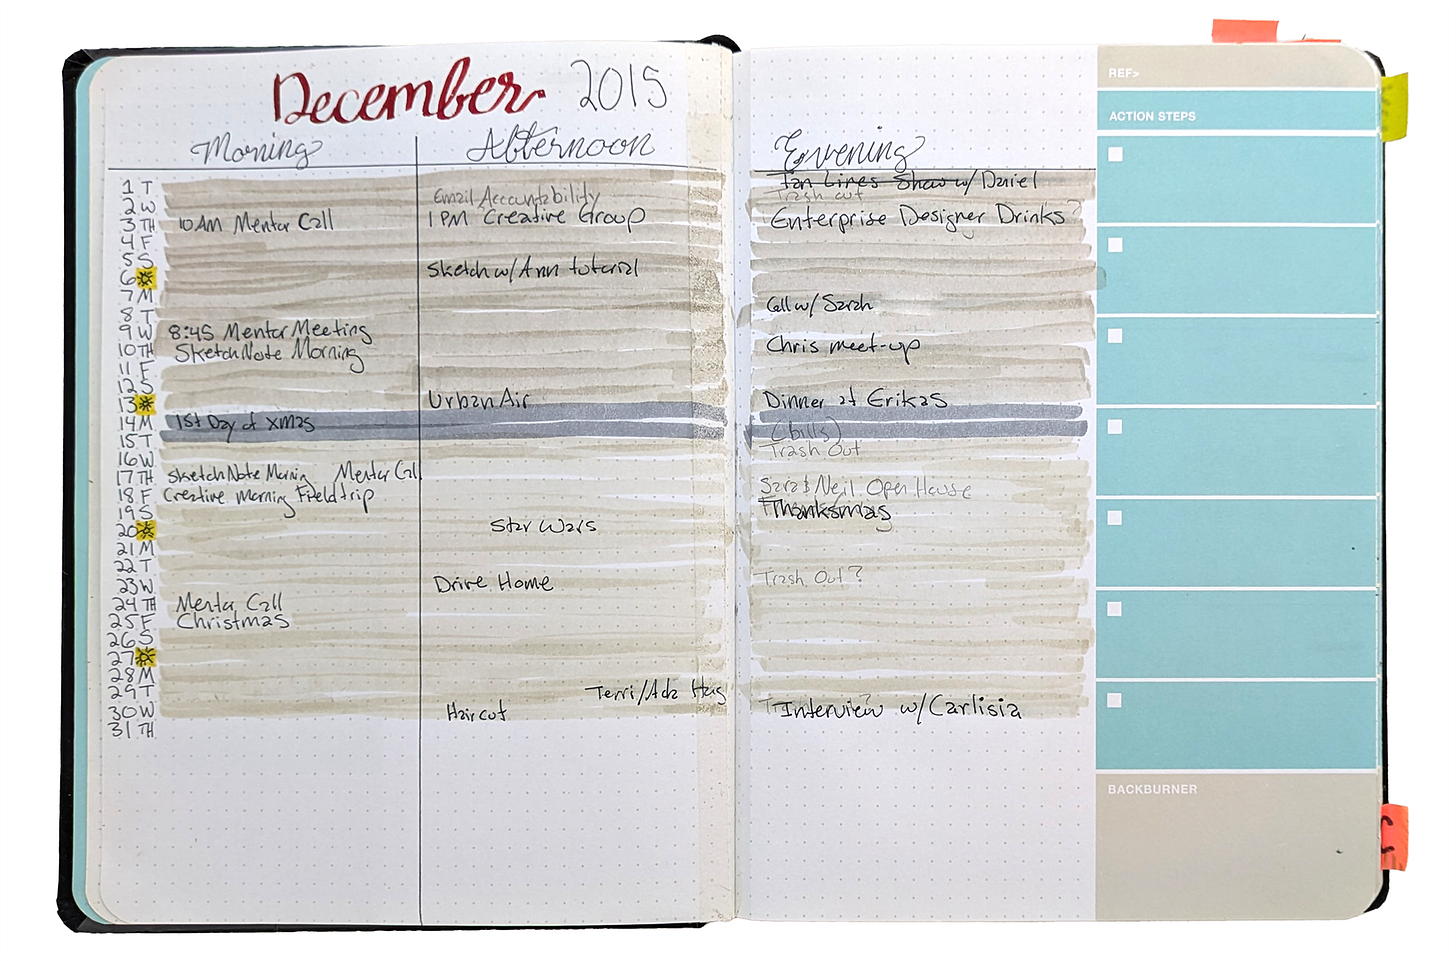 December 2015
Morning Afternoon Evening
1 T Ian Lines Show w/ Daniel
2 W Email Accountability Trash out
3 TH 10 AM Mentor Call 1 PM Creative Group Enterprise Designer Drinks?
4 F
5 S
6 Sketch w/ Ann tutorial
7 M
8 T Call w/ Sarah
9 W 8:45 Mentor Meeting
10 TH SketchNote Morning Chris meet-up
11 F
12 S
13 Urban Air Dinner at Erikas
14 M 1st Day of xmas
15 T (bills)
16 W Trash Out
17 TH SketchNote Morning Mentor Call
18 F Creative morning Fieldtrip Sara & Neil Open House
19 S Thanksmas
20 Star Wars
21 M
22 T
23 W Drive Home Trash Out?
24 TH Mentor Call
25 F Christmas
26 S
27
28 M
29 T Terri/Ada
30 W Haircut Interview w/ Carlisia
31 TH
REF>
ACTION STEPS
BACKBURNER